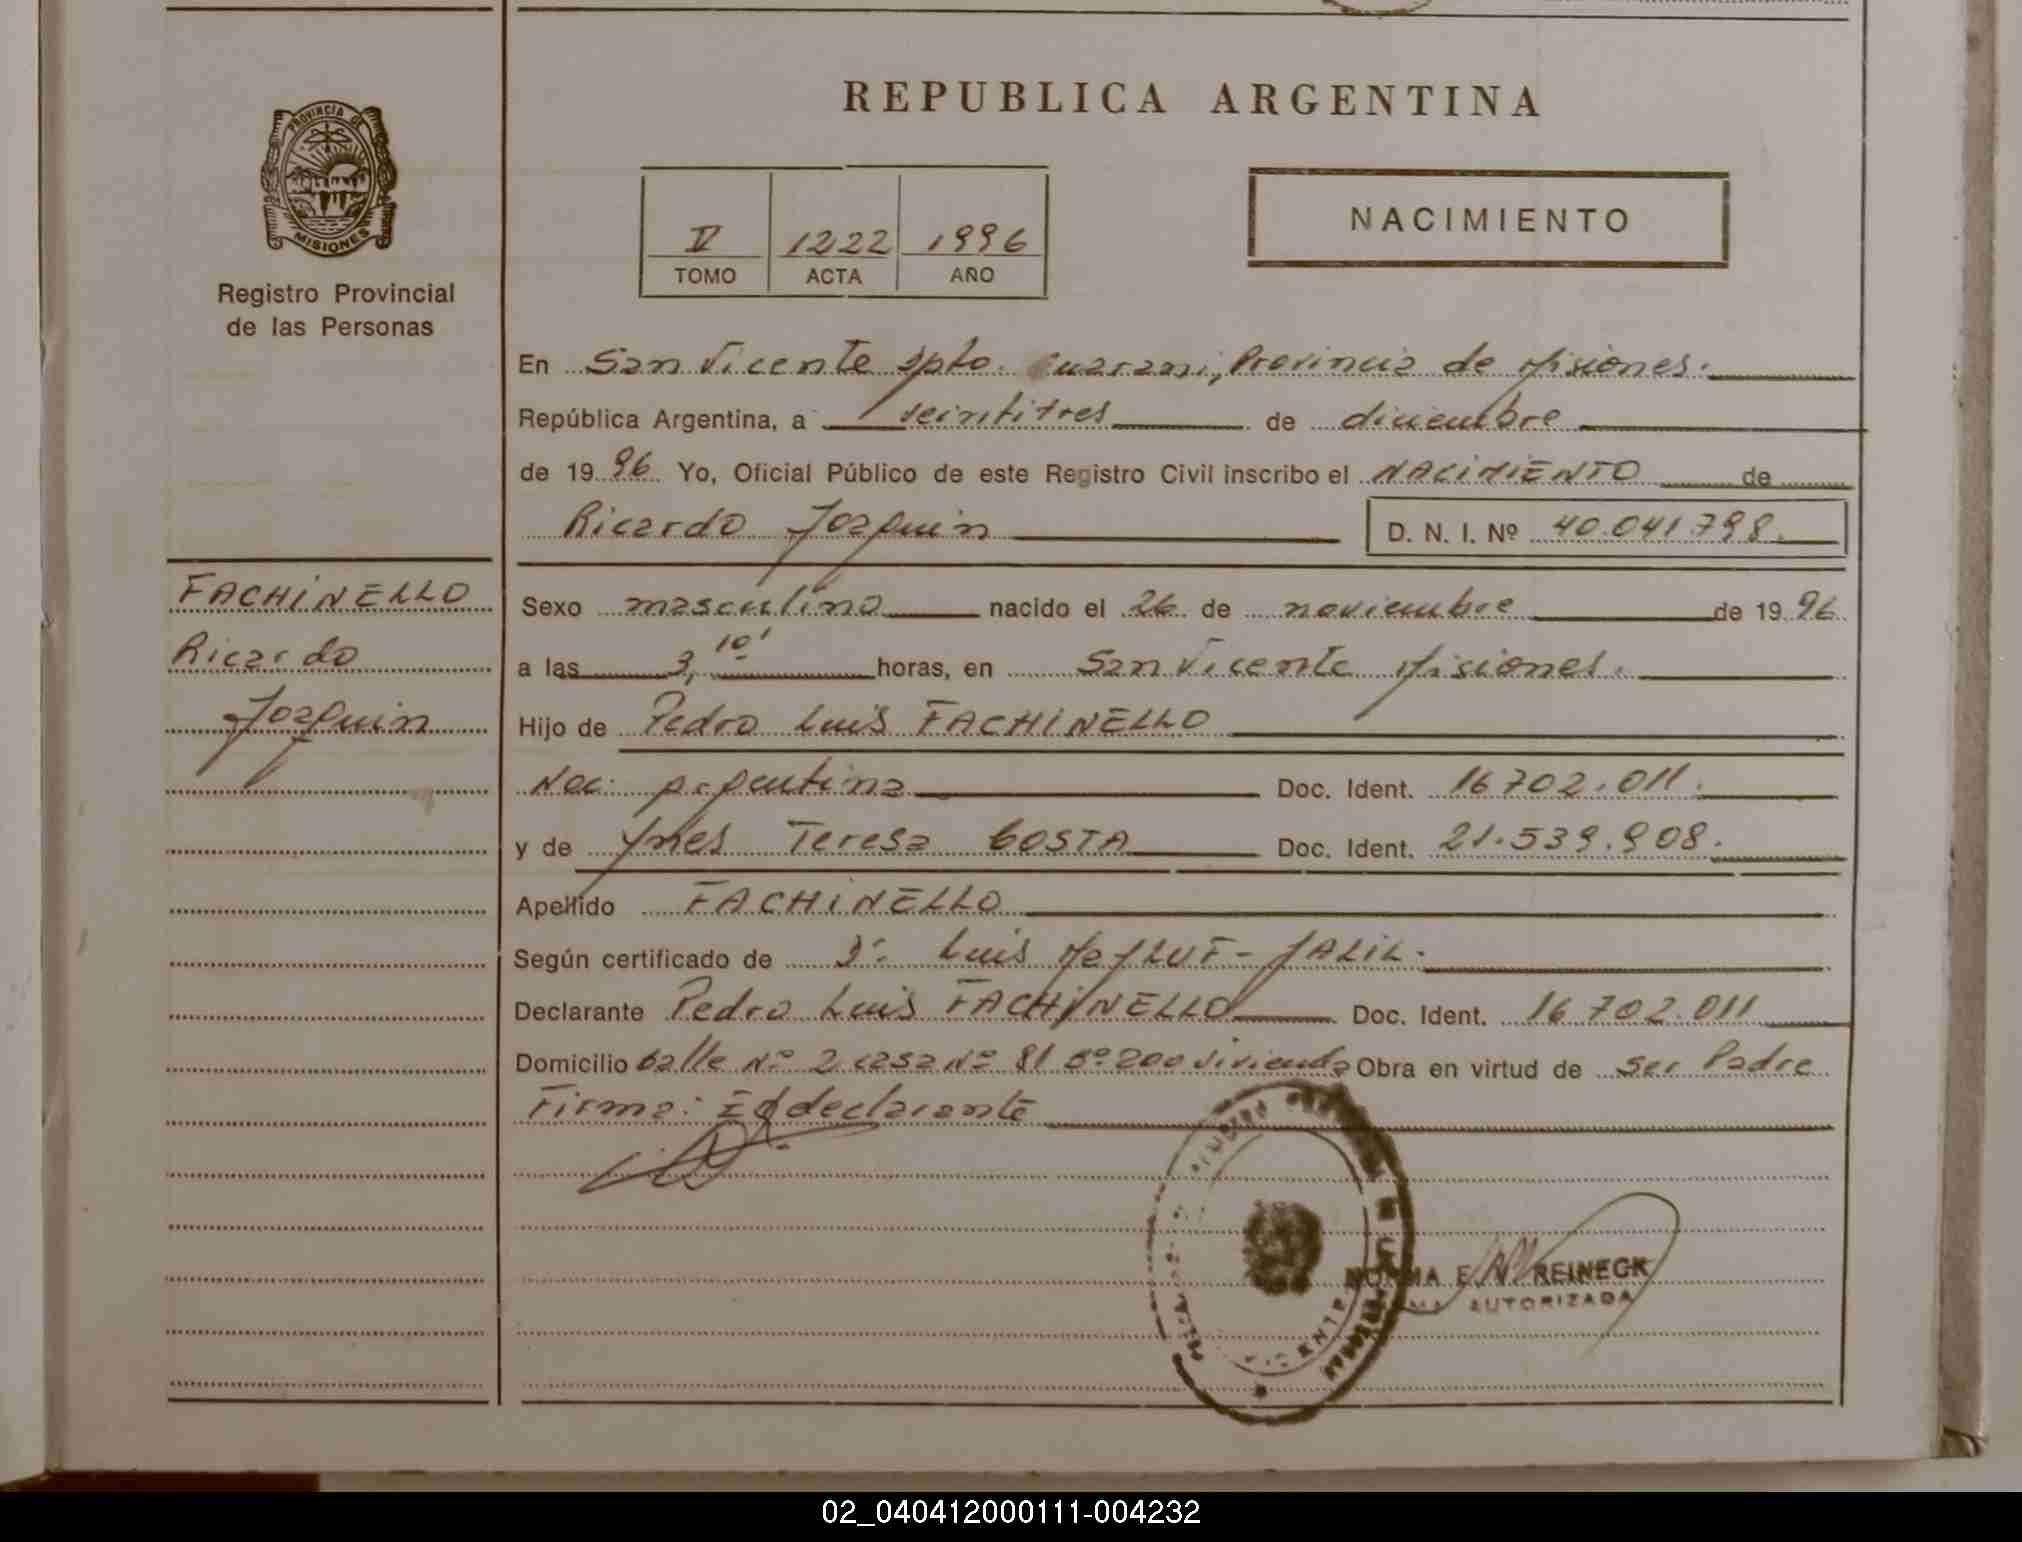 REPUBLICA ARGENTINA
PROVINCIA DE
MISIONES
Registro Provincial
de las Personas
V 1222 1996
TOMO ACTA AÑO
NACIMIENTO
En San Vicente Dpto. Guarani, Provincia de Misiones.
República Argentina, a veintitres de diciembre
de 1996 Yo, Oficial Público de este Registro Civil inscribo el NACIMIENTO de
Ricardo Joaquin D. N. I. Nº 40.041.798.
FACHINELLO
Ricardo
Joaquin
Sexo masculino nacido el 26 de noviembre de 1996
a las 3,10' horas, en San Vicente Misiones.
Hijo de Pedro Luis FACHINELLO
Nac: Argentina Doc. Ident. 16.702.011.
y de Ynes Teresa COSTA Doc. Ident. 21.539.908.
Apellido FACHINELLO
Según certificado de Dr. Luis JALIL.
Declarante Pedro Luis FACHINELLO Doc. Ident. 16.702.011
Domicilio Calle Nº 2 casa Nº 81 Bº 200 Vivienda Obra en virtud de ser Padre
Firma: El declarante
NORMA E. REINECK
AUTORIZADA
02_040412000111-004232